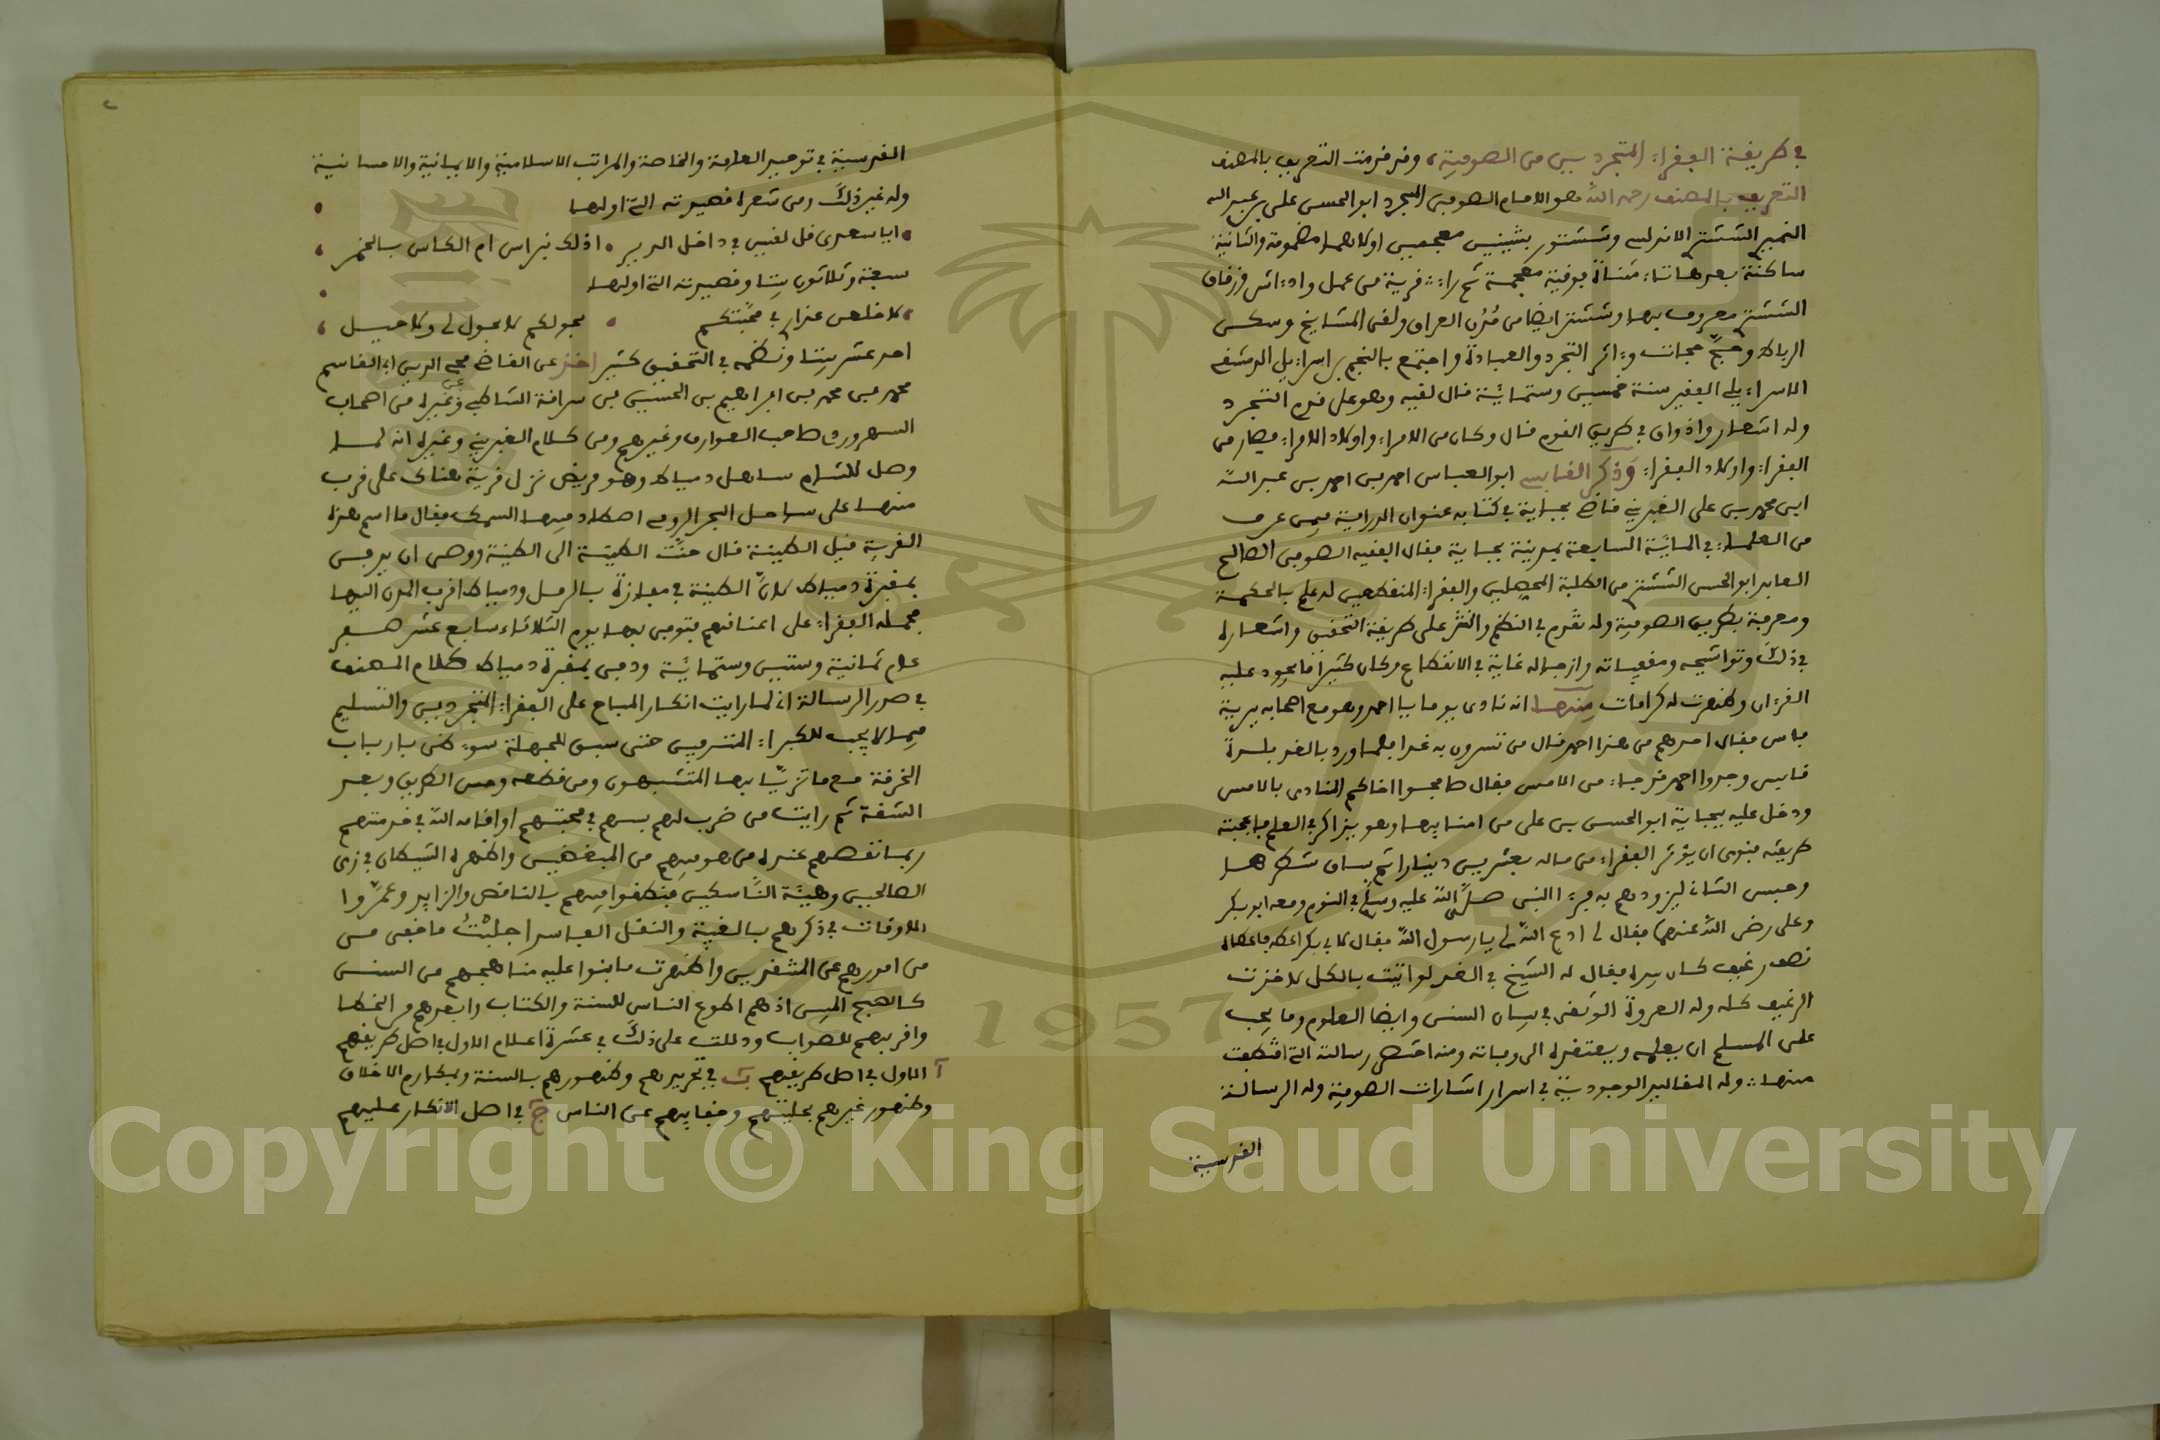 في طريقة الفقراء المتجردين من الصوفية، وقد قدمت التعريف بالمصنف
التعريف بالمصنف رحمه الله هو الامام الصوفي المجرد ابو الحسن علي بن عبد الله
النميري الششتري الاندلسي وششتر بشينين معجمتين اولاهما مضمومة والثانية
ساكنة بعدها تاء مثناة فوقية معجمة ثم راء قرية من عمل وادي اش وزقاق
الششتري معروف بها وششتر ايضا من مدن العراق ولقي المشايخ وسكن
الرباط وحج حجات واثر التجرد والعبادة واجتمع بالنجم بن اسراءيل الدمشقي
الاسراءيلي الفقير سنة خمسين وستمائة قال لقيه وهو على قدم التجرد
وله اشعار واذواق في طريق القوم قال وكان من الامراء واولاد الامراء فصار من
الفقراء واولاد الفقراء وذكر القاضي ابو العباس احمد بن احمد بن عبد الله
ابن محمد بن علي الغبريني قاضي بجاية في كتابه عنوان الدراية فيمن عرف
من العلماء في المائة السابعة بمدينة بجاية فقال الفقيه الصوفي الصالح
العابد ابو الحسن الششتري من الطلبة المحصلين والفقراء المنقطعين له علم بالحكمة
ومعرفة بطريق الصوفية وله تقدم في النظم والنثر على طريقة التحقيق واشعاره
في ذلك وتواشيحه ومقفياته وازجاله غاية في الانطباع وكان كثيرا ما يجود عليه
القرءان وظهرت له كرامات منها انه نادى يوما يا احمد وهو مع اصحابه ببرية
فاس فقال احدهم من هذا احمد فقال من تسرون به غدا فلما ورد بالغد بلدة
قابس وجدوا احمد قد جاء من الامس فقال صافحوا اخاكم المنادى بالامس
ودخل عليه ببجاية ابو الحسن بن علي من امنايها وهو يذاكر في العلم فاعجبته
طريقته فنوى ان يؤثر الفقراء من ماله بعشرين دينارا ثم ساق شطرها
وحبس الثاني ليزودهم به فرءا النبي صلى الله عليه وسلم في النوم ومعه ابو بكر
وعلي رضي الله عنهما فقال لي ادع الله لي يا رسول الله فقال لابي بكر اعطه فاعطاه
نصف رغيف كان بيده فقال له الشيخ في الغد لو اتيت بالكل لاخذت
الرغيف كله وله العروة الوثقى في بيان السنن وايضا العلوم وما يجب
على المسلم ان يعلمه ويعتقده الى وفاته ومنه اختصر رسالته التي اقتطعت
منها وله المقاليد الوجودية في اسرار اشارات الصوفية وله الرسالة
القدسية
القدسية في توحيد العامة والخاصة والمراتب الاسلامية والايمانية والاحسانية
وله غير ذلك ومن شعره قصيدته التي اولها
ايا سعدى قل لقيس في داخل الدير • اذلك نبراس ام الكاس بالخمر
سبعة وثلاثون بيتا وقصيدته التي اولها
لاخلعن عذاري في محبتكم • بحولكم لا بحولي وكا حيل
احد عشر بيتا ونظمه في التحقيق كثير اخذ عن القاضي محيي الدين ابي القاسم
محمد بن محمد بن ابراهيم بن الحسين بن سراقة الشاطبي وغيره من اصحاب
السهروردي صاحب العوارف وغيرهم ومن كلام الغبريني وغيره انه لما
وصل للشام ساحل دمياط وهو مريض نزل قرية هناك على قرب
منها على ساحل البحر الرومي اصطاد فيها السمك فقال ما اسم هذه
القرية قيل الطينة قال حنت الطينة الى الطينة ووصى ان يدفن
بمقبرة دمياط لان الطينة في مفازة بالرمل ودمياط اقرب المدن اليها
فحمله الفقراء على اعناقهم فتوفي بها يوم الثلاثاء سابع عشر صفر
عام ثمانية وستين وستمائة ودفن بمقبرة دمياط كلام المصنف
في صدر الرسالة اني لما رايت انكار المباح على الفقراء المتجردين والتسليم
فيما لا يجب للكبراء المترفين حتى سبق للجهلة سوء ظن بارباب
الخرقة مع ما تزيا بها المتشبهون ومن قطعه وحس الطريق وبعد
الشقة ثم رايت من ضرب لهم بسهم في محبتهم او اقامه الله في خدمتهم
ربما نقصهم عنده من هو فيهم من المبغضين واظهره الشيطان في زي
الصالحين وهيئة الناسكين فنطقوا فيهم بالناقص والزايد وعمروا
الاوقات في ذكرهم بالغيبة والنقل الفاسد اجلبت ما خفي من
من امورهم عن المشفقين واظهرت ما بنوا عليه مناهجهم من السنن
كالصبح المبين اذ هم اطوع الناس للسنة والكتاب وابعدهم من الخطا
واقربهم للصواب ودللت على ذلك في عشرة اعلام الاول في اصل طريقهم
آ الاول في اصل طريقهم ب في تجريدهم وظهورهم بالسنة ومكارم الاخلاق
وظهور غيرهم بحليتهم وخفايهم عن الناس ج في اصل الانكار عليهم
1957
Copyright © King Saud University